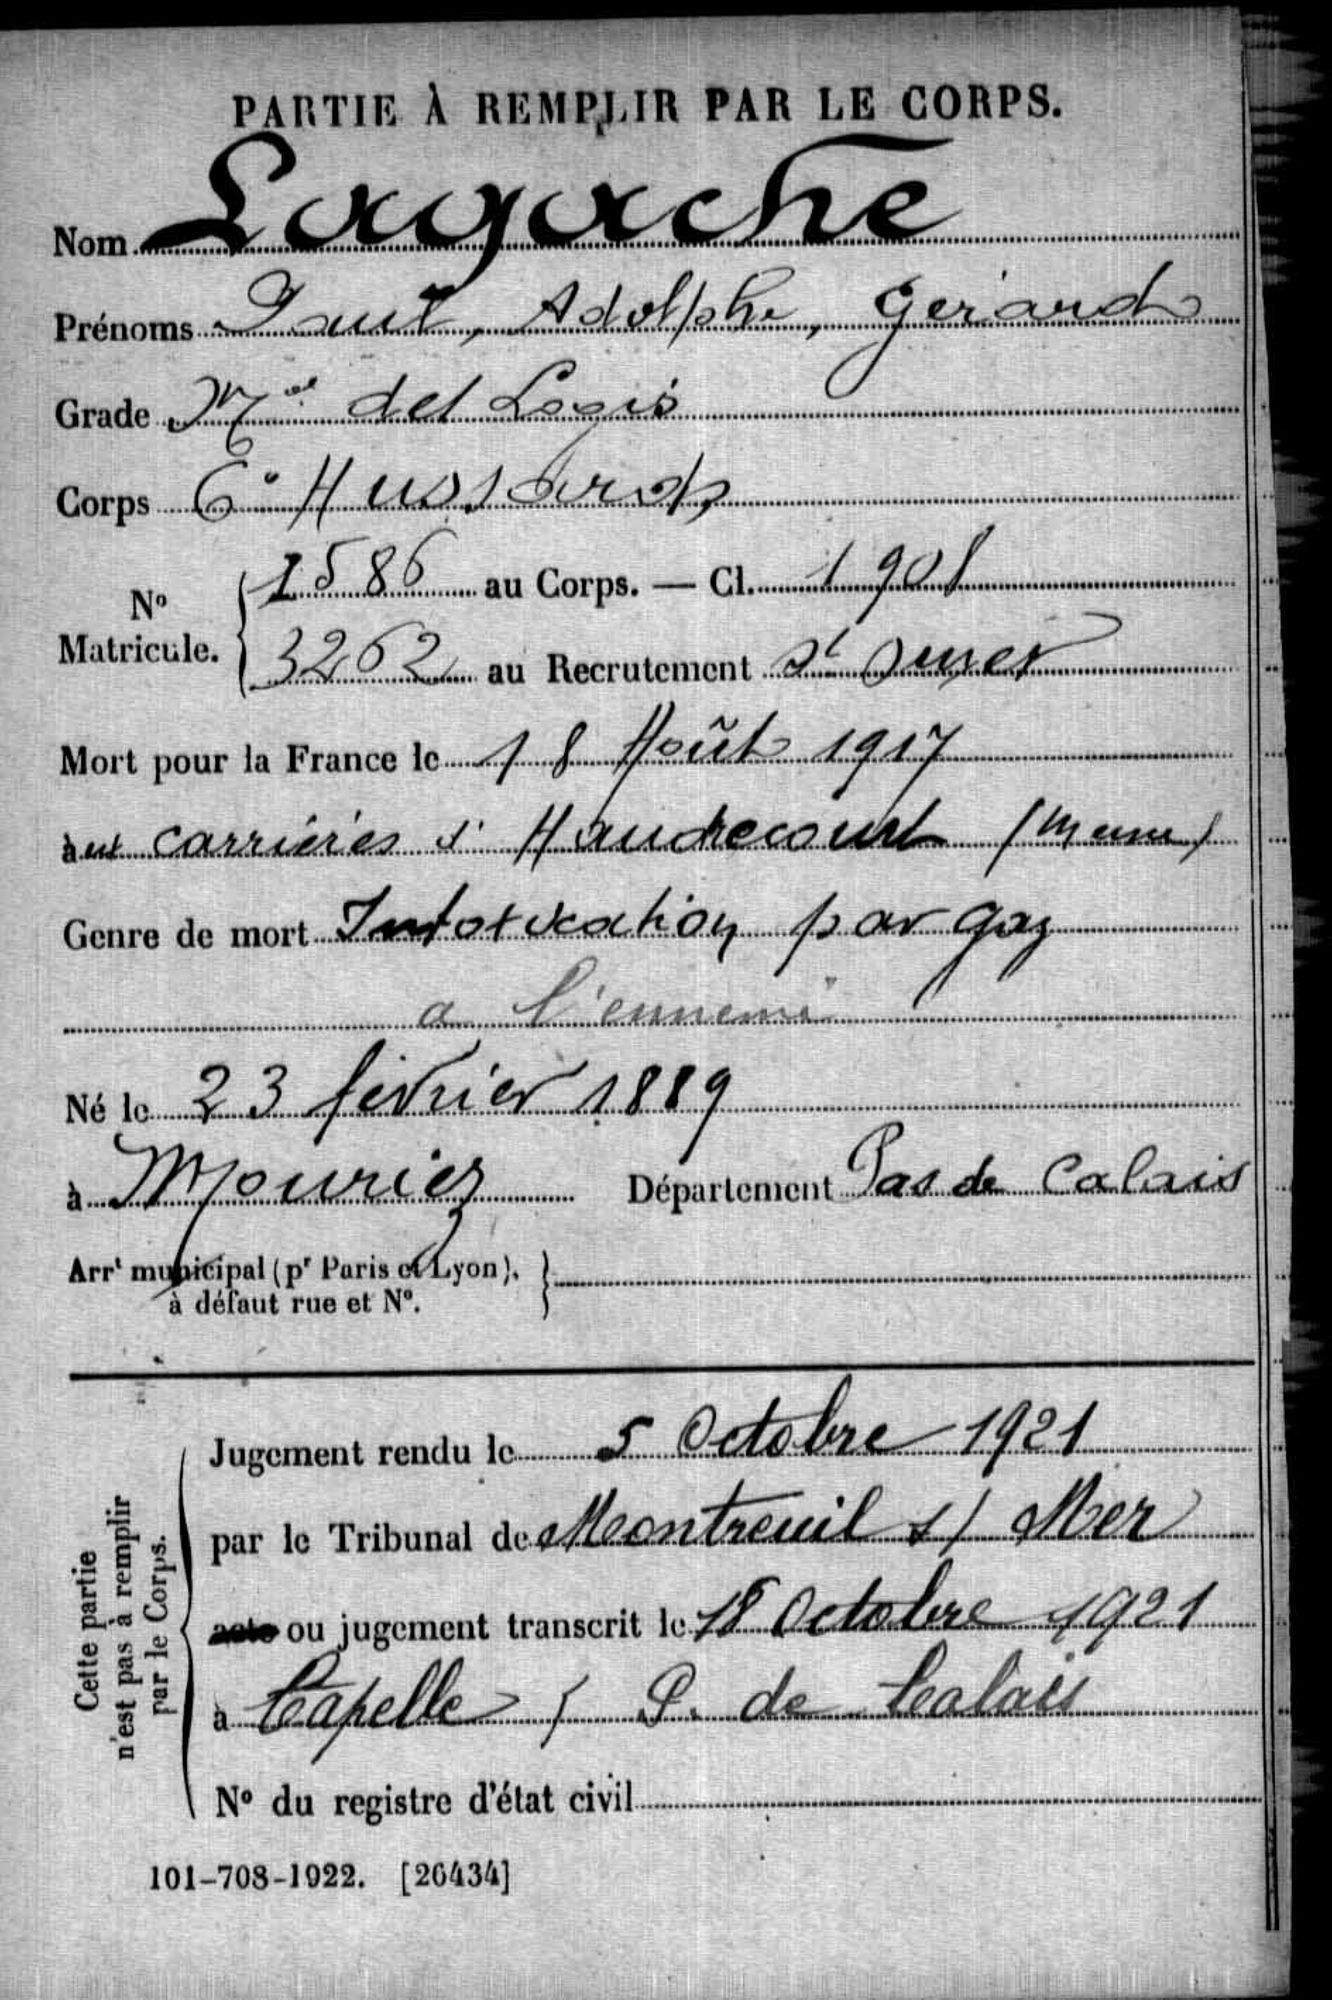 PARTIE À REMPLIR PAR LE CORPS.
Nom Lagache
Prénoms Paul, Adolphe, Gérard
Grade Mal del Logis
Corps 6e Hussards
No Matricule. 1586 au Corps. — Cl. 1908
3262 au Recrutement St Omer
Mort pour la France le 18 Août 1917
aux carrières d'Haudrecourt (Meuse)
Genre de mort Intoxication par gaz
a l'ennemi
Né le 23 février 1889
à Mouriez Département Pas de Calais
Arrt municipal (pr Paris et Lyon),
à défaut rue et No.
Cette partie
n'est pas à remplir
par le Corps.
Jugement rendu le 5 Octobre 1921
par le Tribunal de Montreuil s/ Mer
acte ou jugement transcrit le 18 Octobre 1921
à Capelle P. de Calais
No du registre d'état civil
101-708-1922. [26434]